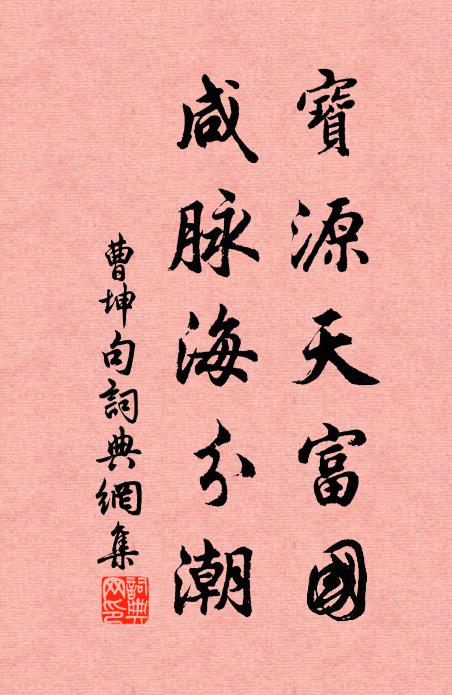 寶源天富國
咸脉海分潮
曹坤句詞典網集
詞典網印